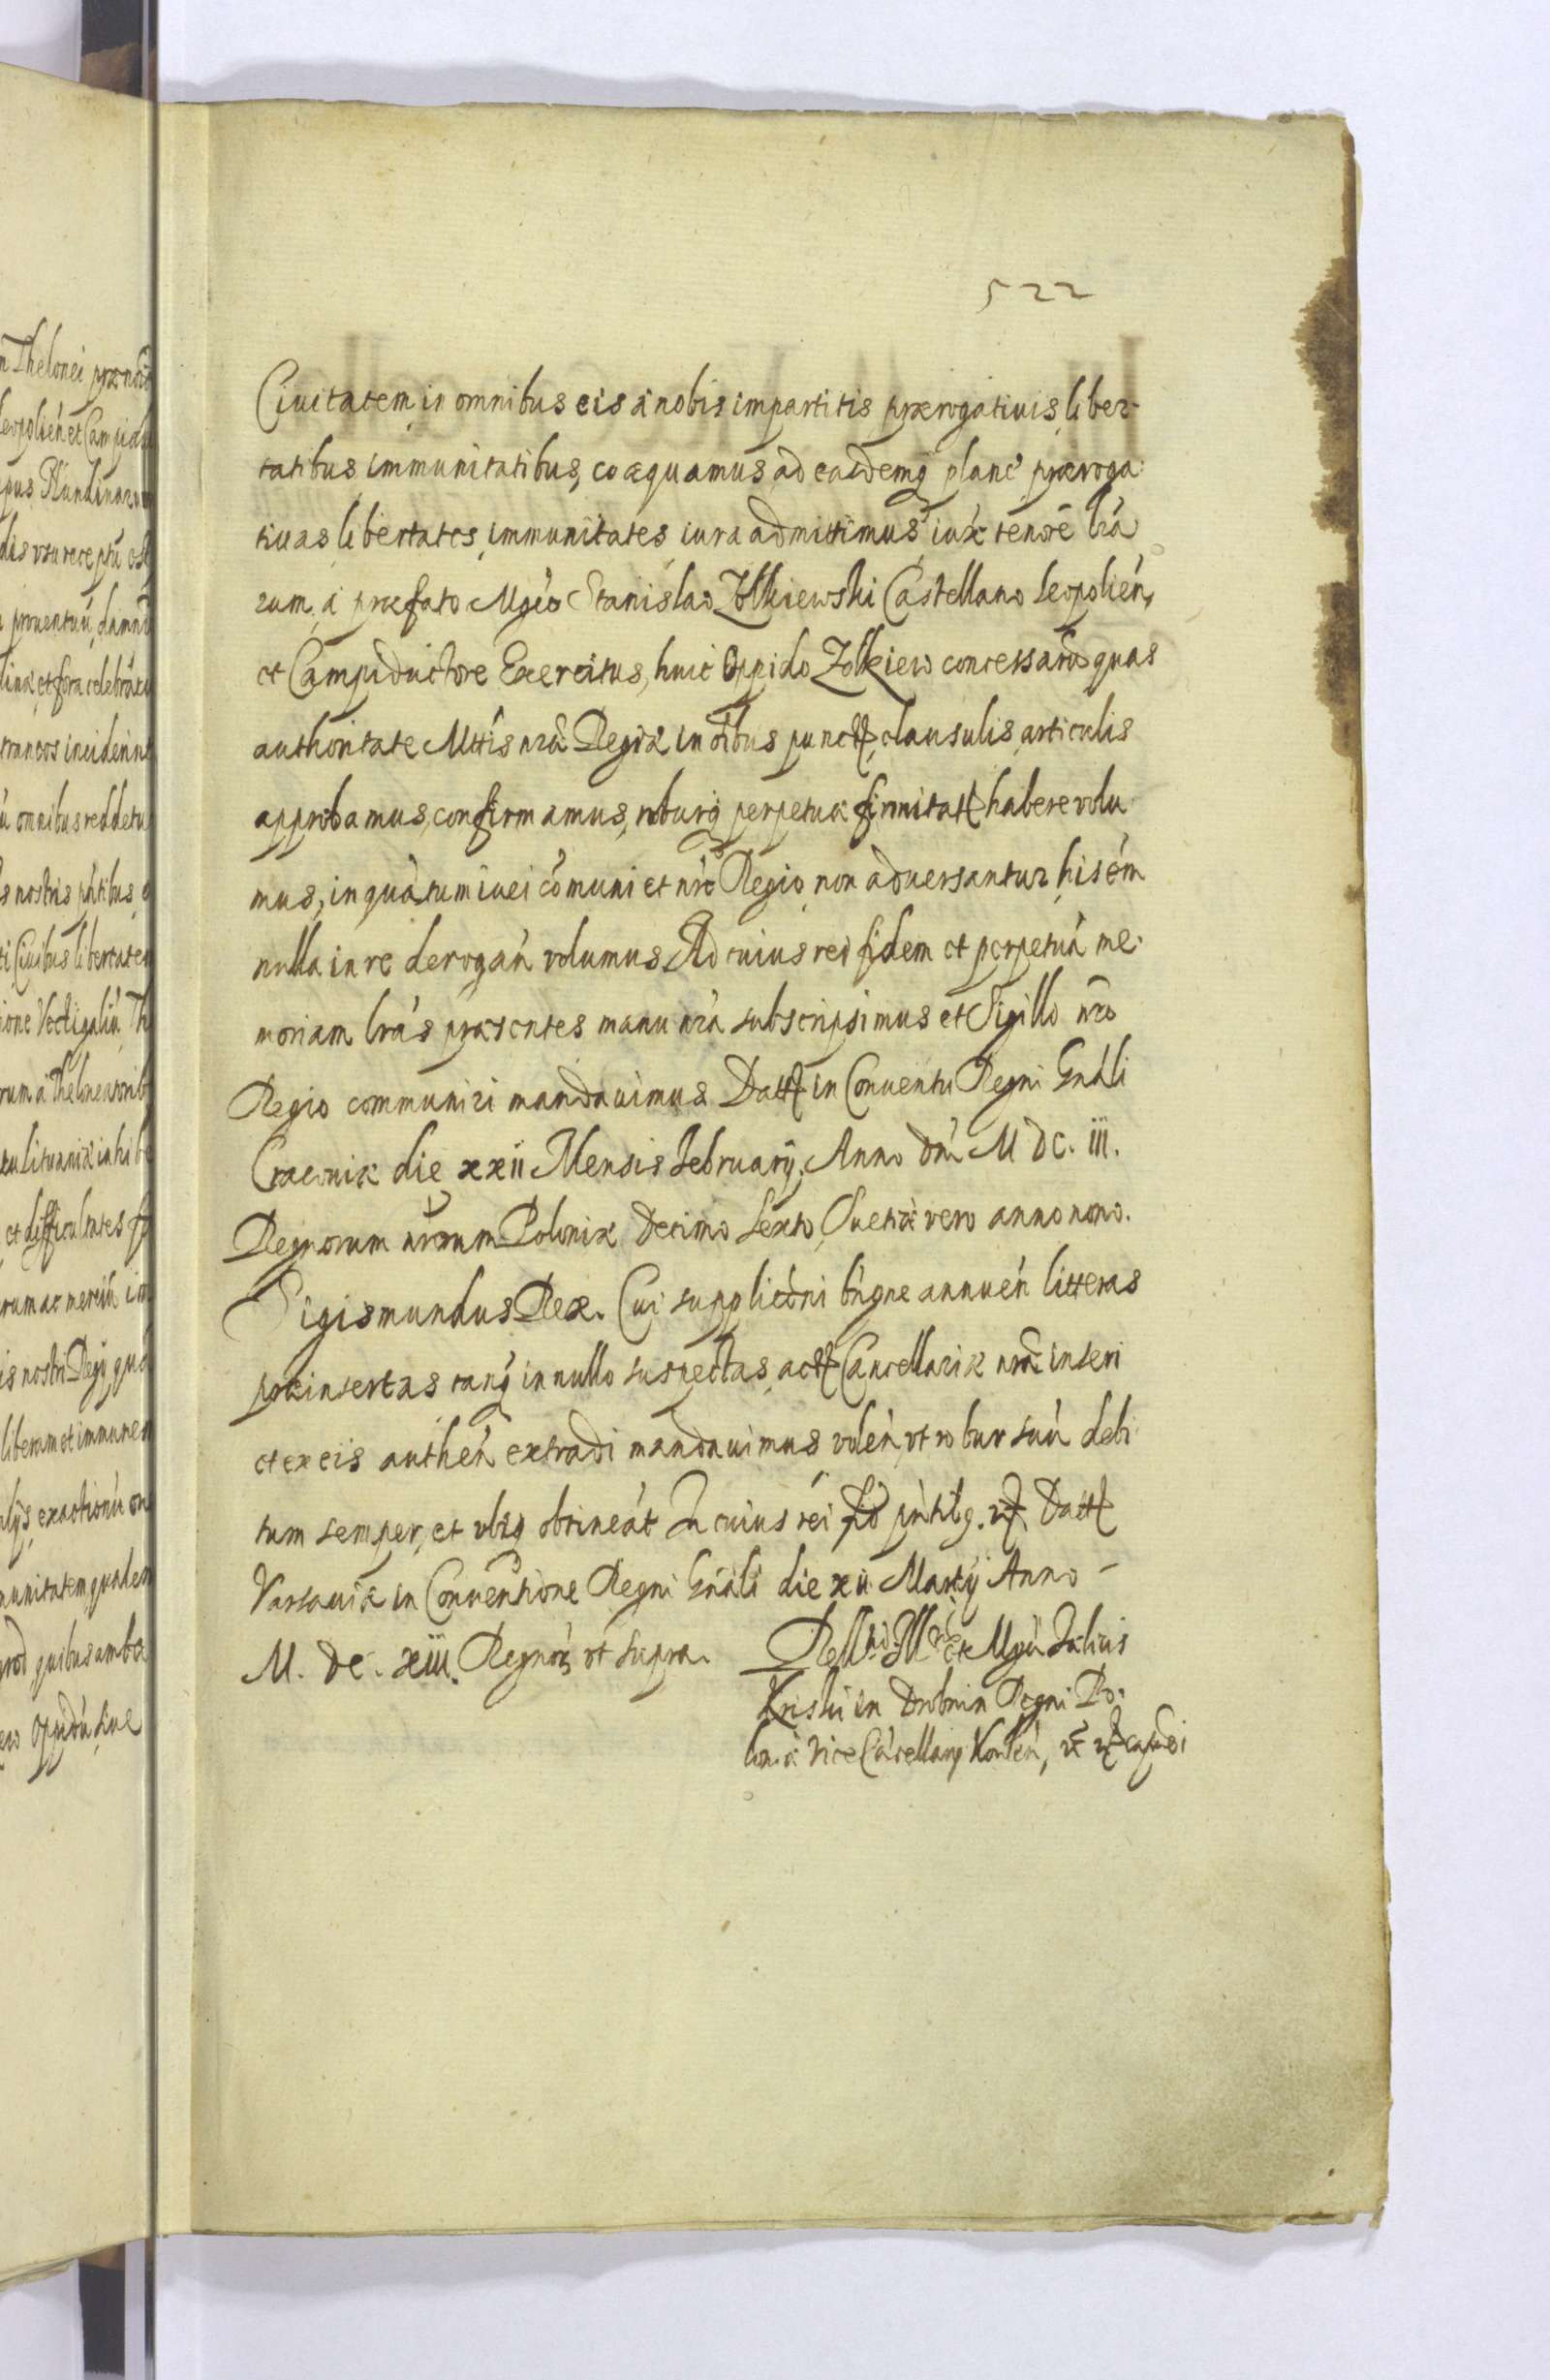 522
Ciuitatem in omnibus eis a nobis impartitis prærogatiuis, liber-
tatibus immunitatibus, coæquamus, ad easdemq plané præroga:
tiuas libertates, immunitates, iura admittimus, iux tenore lrá
rum, á præfato Mgco Stanislao Zolkiewski Castellano Leopolień,
et Campiductore Exercitus, huic Oppido Zolkiew concessarū quas
authoritate Mttis nræ Regiæ in oibus punct, clausulis, articulis
approbamus, confirmamus, roburq perpetuæ firmitat habere volu
mus, inquātum iuri cōmuni et nro Regio non aduersantur, his em
nulla in re derogań volumus. Ad cuius rei fidem et perpetuā me-
moriam lrás præsentes manu nrá subscripsimus et Sigillo nro
Regio communiri mandauimus Datt in Conuentu Regni Gnáli
Cracouiæ die xxii Mensis February. Anno dni M DC. iii.
Regnorum nrorum Poloniæ decimo sexto, Suetiæ vero anno nono.
Sigismundus Rex. Cui supplicōni bńgne annueń litteras
præinsertas tanq in nullo suspectas, act Cancellariæ nræ inseri
et ex eis autheń extradi mandauimus voleń, vt robur suū debi
tum semper, et vbiq obtineát In cuius rei fid pńtibq. Datt
Varsauiæ in Conuentione Regni Gnáli die xii Martÿ Anno -
M. DC. xiii. Regnor vt supra.
Rell Illris et Mgci Fælicis
Kriski in Drobnin Regni Po:
loniæ Vice Cácellarÿ
n Thelonei prænoi
Leopolień et Campid
Nundinarum
dis vsu receptū est
prouentuū, damnū
linæ, et fora celebrá
trancos inciderint
omnibus reddetu
s nostris pńtibus
Ciuibus libertatem
ione Vectigaliū Th
rum á Theloneatorib
Lituaniæ inhibe
et difficultates
rum ac merciū
is nostri Regÿ, quo
liberam et immunem
alÿs exactionū
munitatem qualem
quod, quibus ambæ
Opidū siue